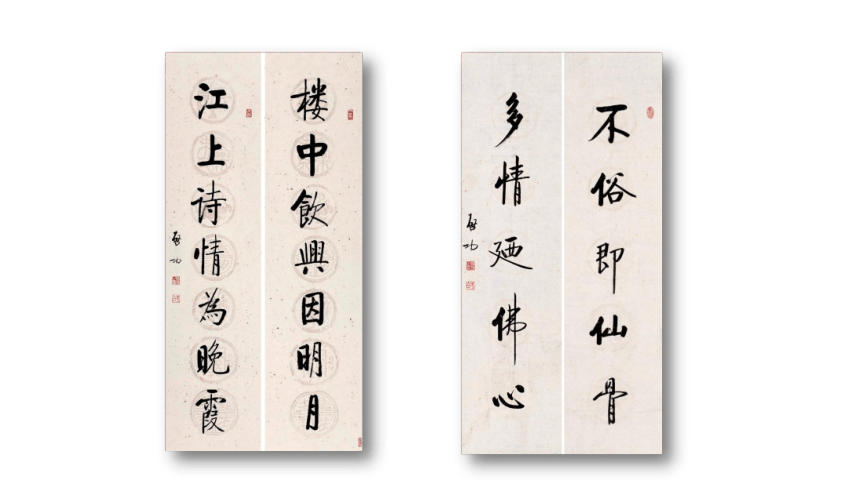 楼中飲興因明月
江上诗情為晚霞
启功
不俗即仙骨
多情廼佛心
启功